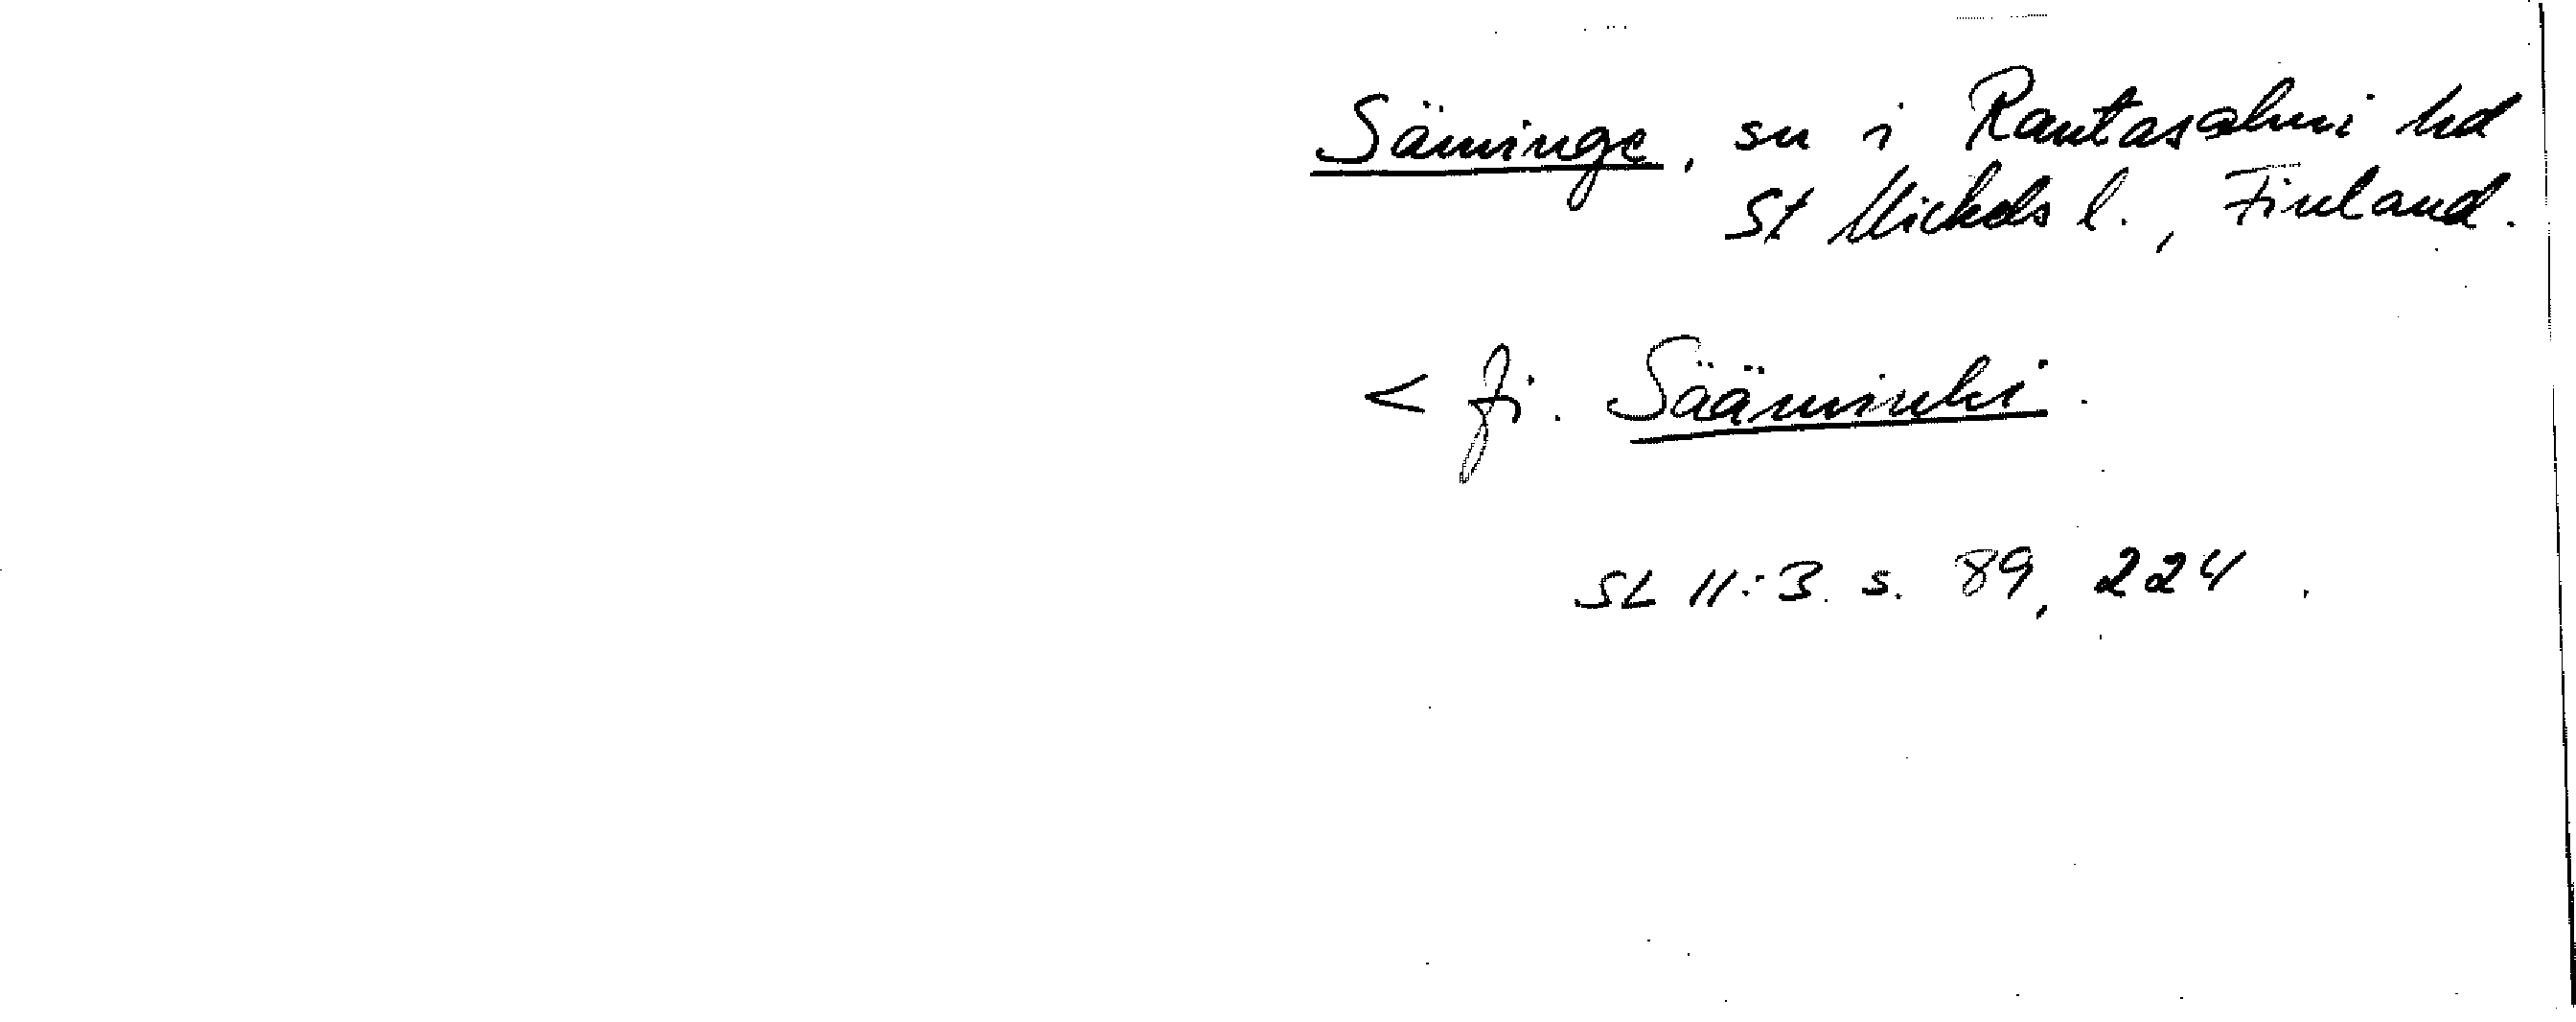 Säminge, sn i Rantasalmi hd
St Mickels l., Finland.
< fi. Sääminki.
SL 11:3. s. 89, 224.